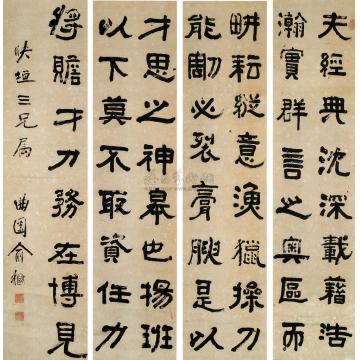 夫經典沈深載籍浩
瀚實群言之奧區而
才思之神皋也揚班
以下莫不取資任力
耕耘縱意漁獵操刀
能割必裂膏腴是以
將贍才力務在博見
映垣三兄屬
曲園俞樾